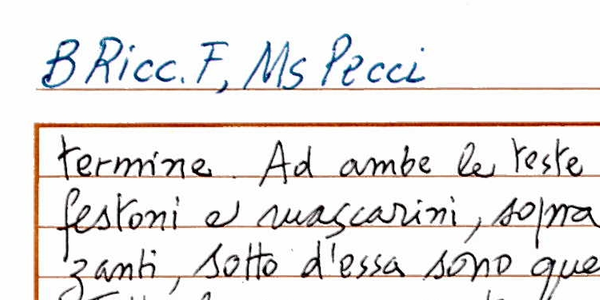 B Ricc. F, Ms Pecci
termine. Ad ambe le teste
festoni e mascarini, sopra
zanti, sotto d'essa sono que